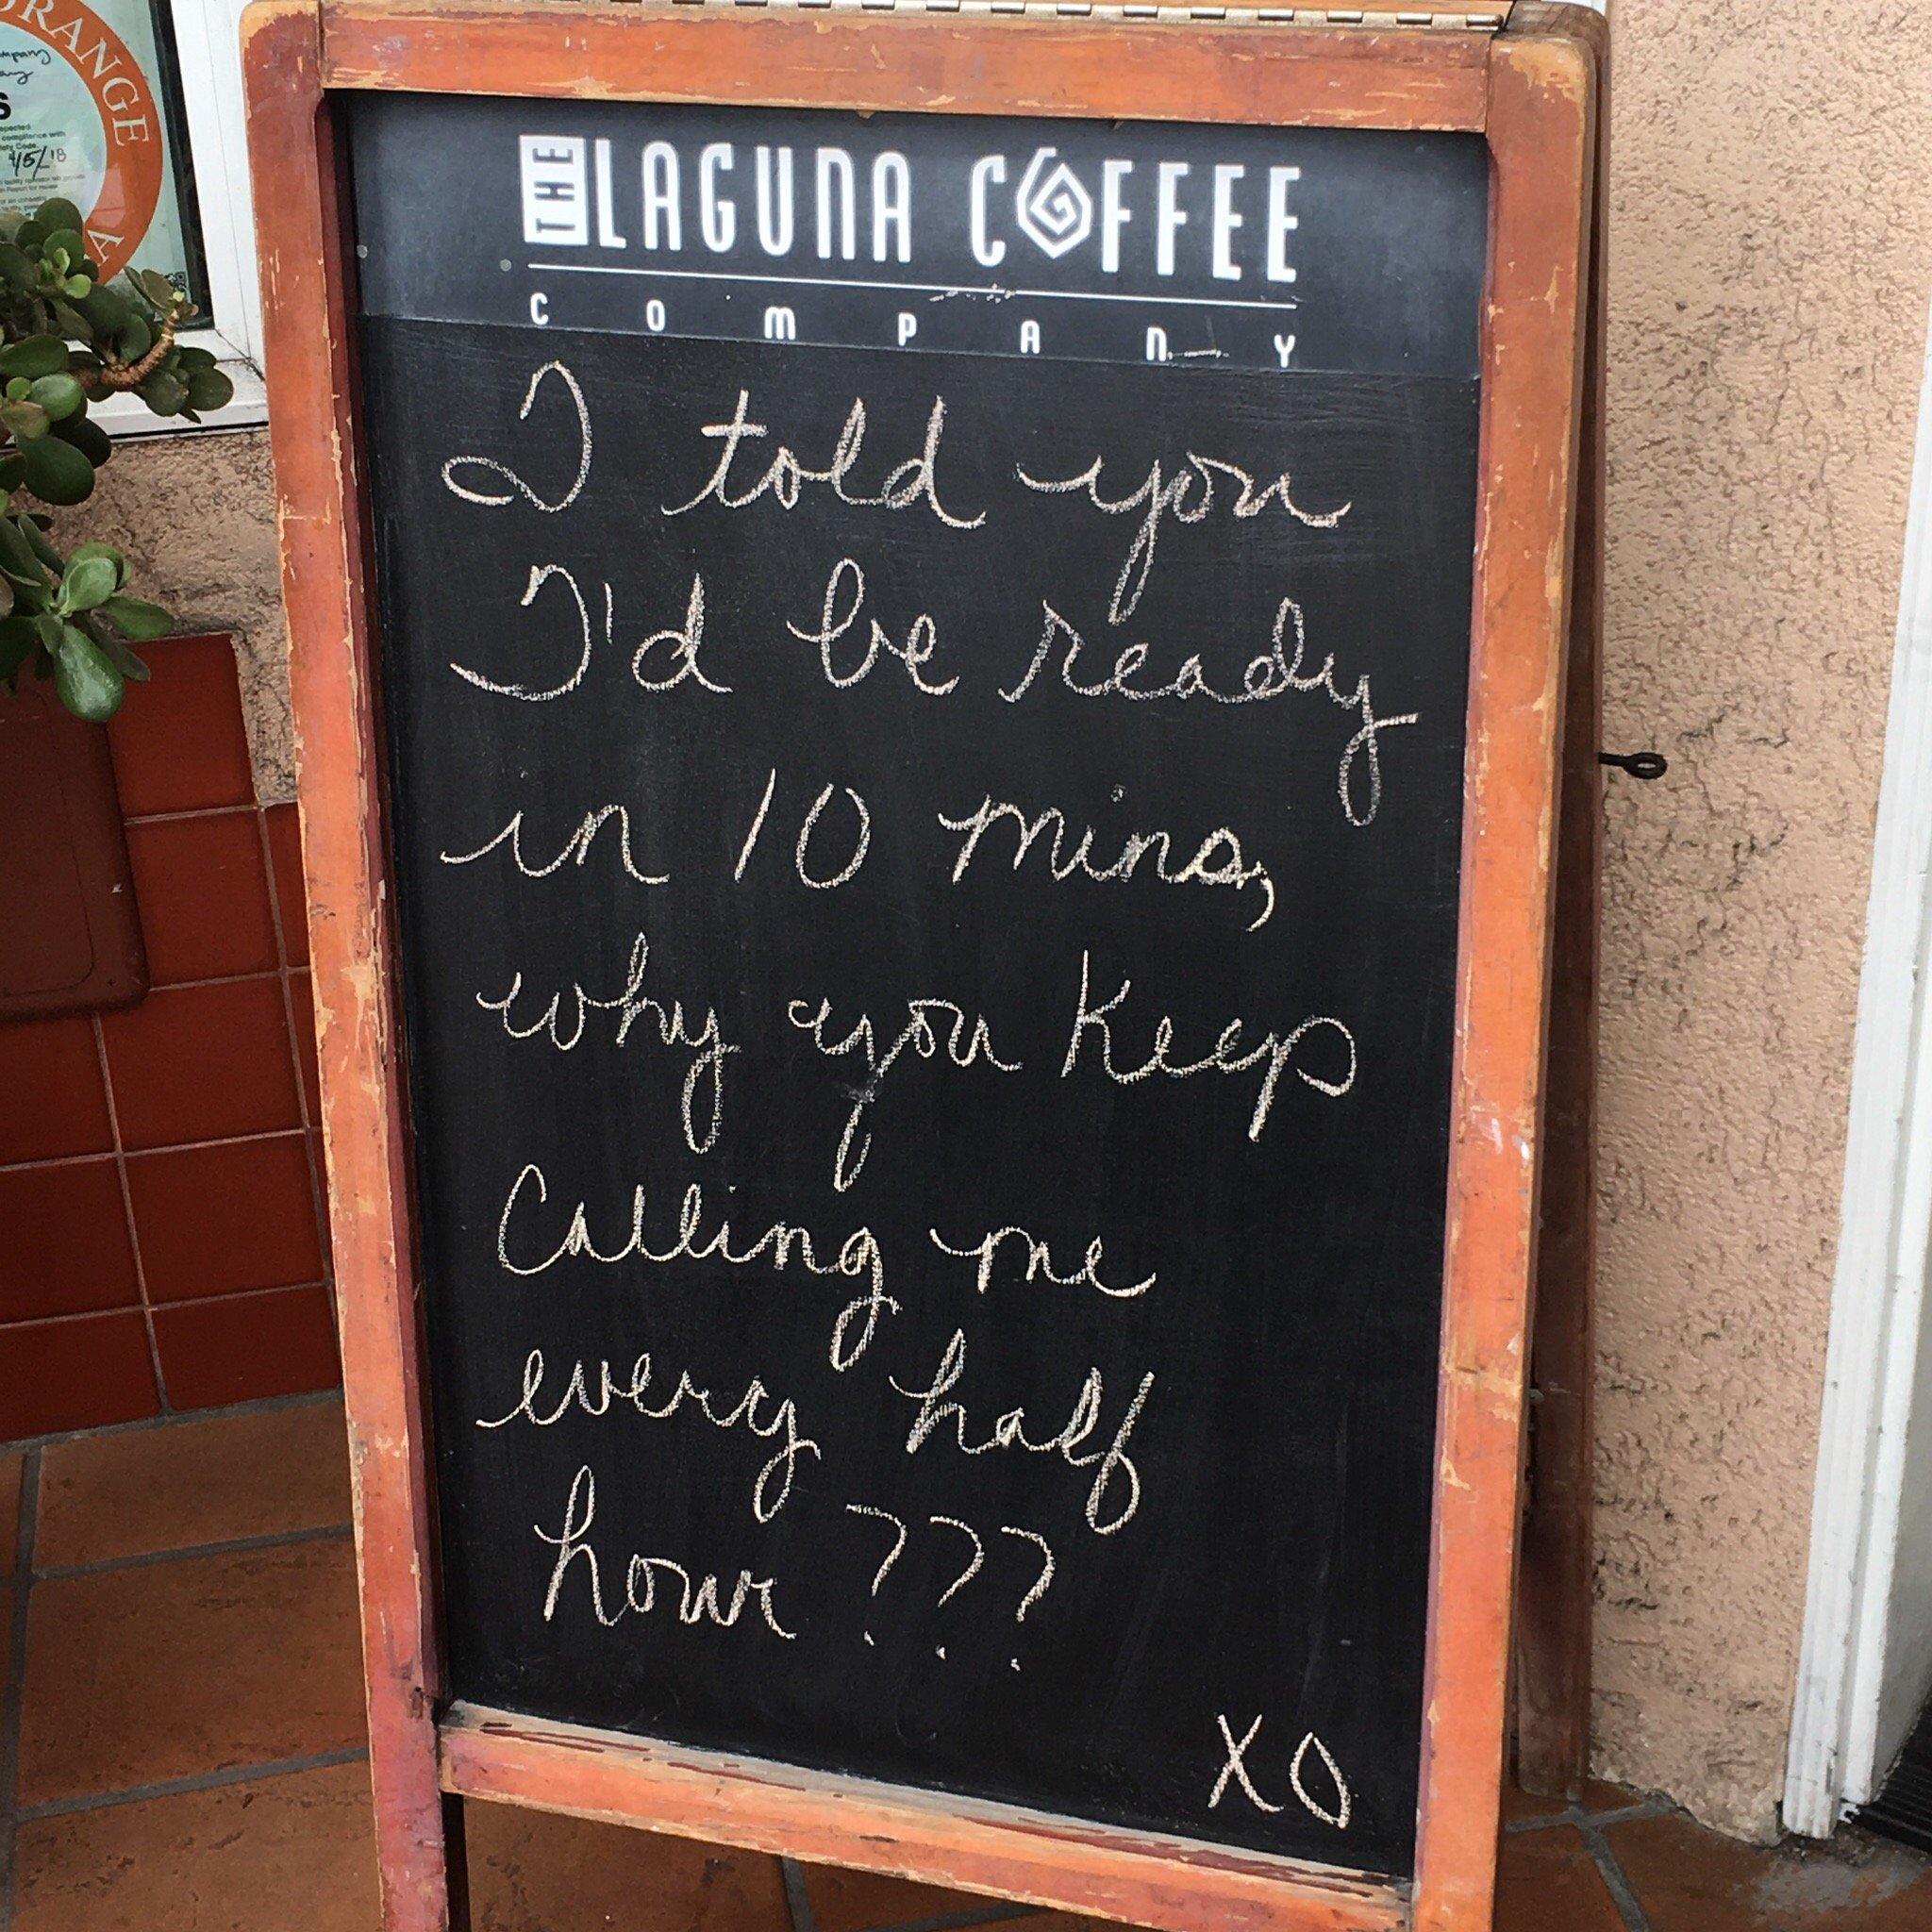 RANGE
ompany
S
4/5/18
A
THE LAGUNA COFFEE
COMPANY
I told you
I'd be ready
in 10 mins,
why you keep
Calling me
every half
hour ???
XO